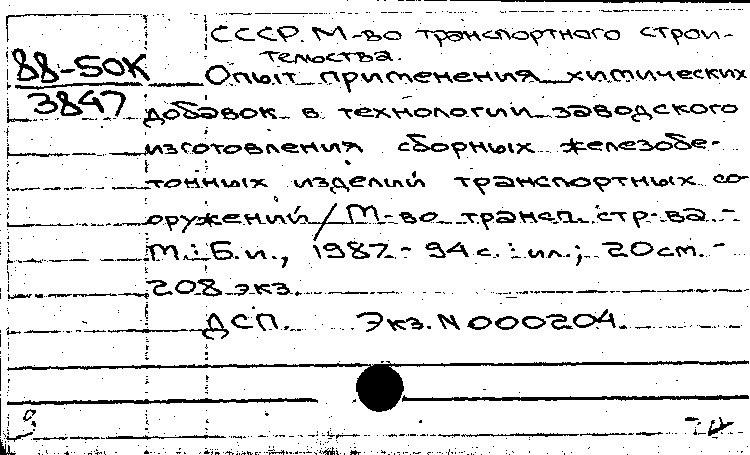 СССР. М-во транспортного строи-
тельства.
88-50К
3847
Опыт применения химических
добавок в технологии заводского
изготовления сборных железобе-
тонных изделий транспортных со-
оружений / М-во трансп. стр-ва. -
М.: Б.и., 1987. - 94 с.: ил.; 20 см. -
208 экз.
ДСП. Экз. N 000204.